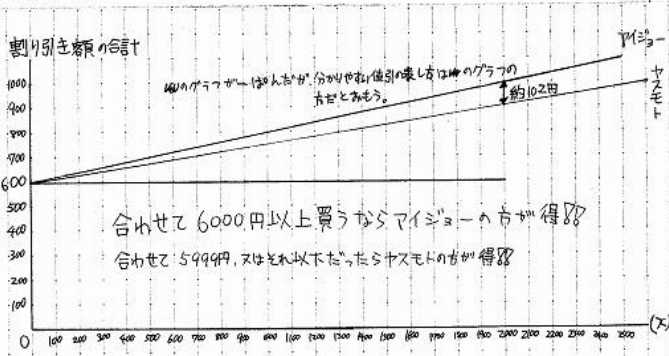 割り引き額の合計
アイジョー
ヤスモト
のグラフが一ぱんだが、分かりやすい値引の表し方は のグラフの
方だとおもう。
約102円
1000
900
800
700
600
500
400
300
200
100
0
合わせて6000円以上買うならアイジョーの方が得!!
合わせて5999円,又はそれ以下だったらヤスモトの方が得!!
100 200 300 400 500 600 700 800 900 1000 1100 1200 1300 1400 1500 1600 1700 1800 1900 2000 2100 2200 2300 2400 2500